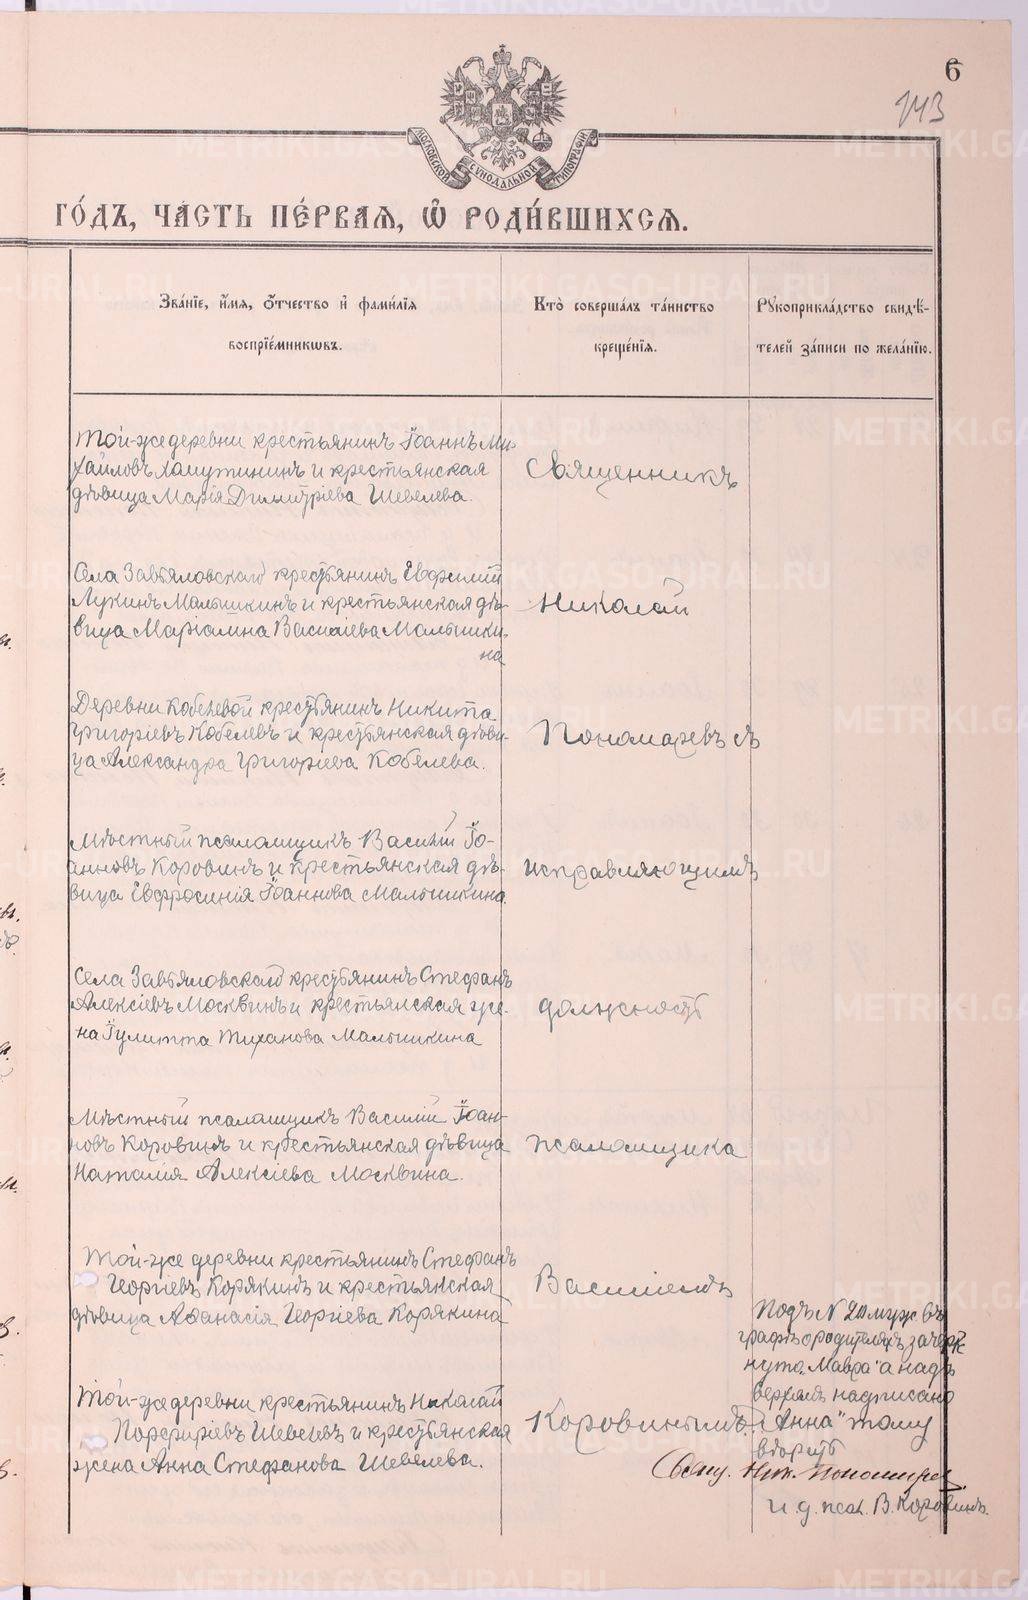 6
143
МОСКОВСКОЙ СУНОДАЛЬНОЙ ТИПОГРАФІИ
ГО́ДЪ, ЧА́СТЬ ПЕ́РВАѦ, Ѽ РОДИ́ВШИХСѦ.
Зва́нїе, и҆́мѧ, ѻ҆́тчество и҆ фами́лїѧ
воспрїе́мникѡвъ.
Кто̀ соверша́лъ та́инство
креще́нїѧ.
Рꙋкоприкла́дство свидѣ́-
телей за́писи по жела́нїю.
Той-же деревни крестьянинъ Іоаннъ Ми-
хайловъ Хамутининъ и крестьянская
дѣвица Марія Димитріева Шевелева.
Священникъ
Села Завьяловскаго крестьянинъ Евфимій
Лукинъ Малышкинъ и крестьянская дѣ-
вица Маріамна Василіева Малышки-
на
Николай
Деревни Кобелевой крестьянинъ Никита
Григоріевъ Кобелевъ и крестьянская дѣви-
ца Александра Григоріева Кобелева.
Пономаревъ съ
Мѣстный псаломщикъ Василій Іо-
анновъ Коровинъ и крестьянская дѣ-
вица Евфросинія Іоаннова Малышкина.
исправляющимъ
Села Завьяловскаго крестьянинъ Стефанъ
Алексіевъ Москвинъ и крестьянская же-
на Іулитта Тиханова Малышкина
должность
Мѣстный псаломщикъ Василій Іоан-
новъ Коровинъ и крестьянская дѣвица
Наталія Алексіева Москвина.
псаломщика
Той-же деревни крестьянинъ Стефанъ
Георгіевъ Корякинъ и крестьянская
дѣвица Аѳанасія Георгіева Корякина
Василіемъ
Той-же деревни крестьянинъ Николай
Порфиріевъ Шевелевъ и крестьянская
жена Анна Стефанова Шевелева.
Коровинымъ.
Подъ № 20 муж въ
графѣ о родителяхъ зачерк
нуто „Мавра" а надъ
верхомъ надписано
„Анна" тому
вѣрить
Свящ. Ник. Пономарев
и. д. псал. В. Коровинъ.
METRIKI.GASO-URAL.RU